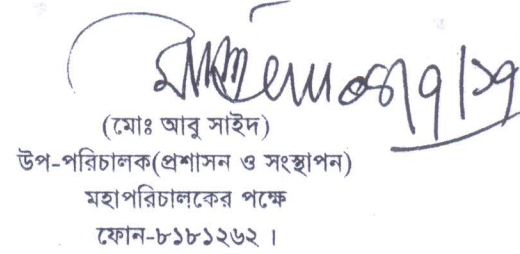 (মোঃ আবু সাইদ)
উপ-পরিচালক(প্রশাসন ও সংস্থাপন)
মহাপরিচালকের পক্ষে
ফোন-৮১৮১২৬২ ।